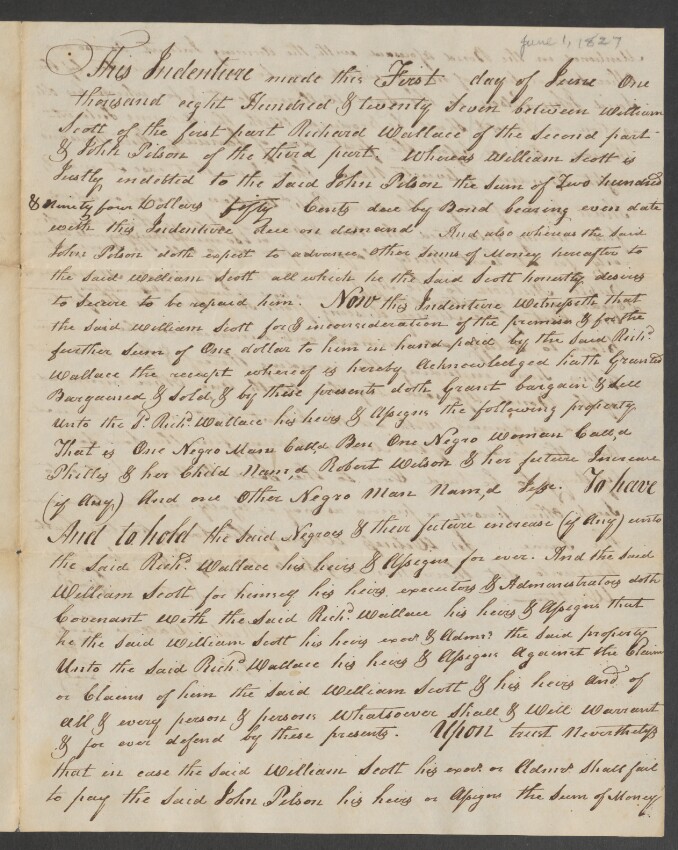 June 1, 1827
This Indenture made this First day of June One
thousand eight Hundred & twenty Seven between William
Scott of the first part Richard Wallace of the Second part
& John Pilson of the third part. Whereas William Scott is
Justly indebted to the Said John Pilson the Sum of Two hundred
& ninity four Dollars fifty Cents due by Bond bearing even date
with this Indenture due on demand And also whereas the Said
John Pilson doth expect to advance other Sums of Money hereafter to
the Said William Scott all which he the Said Scott honestly desires
to Secure to be repaid him. Now this Indenture Witnesseth that
the Said William Scott for & inconsideration of the premises & for the
further Sum of One dollar to him in hand paid by the Said Richd.
Wallace the receipt whereof is hereby Acknowledged hath Granted
Bargained & Sold, & by these presents doth Grant bargain & Sell
Unto the Sd. Richd. Wallace his heirs & Assigns the following property
That is One Negro Man Call,d Ben One Negro Woman Call,d
Phillis & her Child Nam,d Robert Wilson & her future Increase
(if Any,) And one other Negro Man Nam,d Jesse. To have
And to hold the Said Negroes & their future increase (if Any) unto
the Said Richd. Wallace his heirs & Assigns for ever. And the Said
William Scott for himself his heirs executors & Administrators doth
Covenant with the Said Richd. Wallace his heirs & Assigns that
he the Said William Scott his heirs exors. & Admrs. the Said property
Unto the Said Richd. Wallace his heirs & Assigns Against the Claim
or Claims of him the Said William Scott & his heirs And of
all & every person & persons Whatsoever Shall & Will Warrant
& for ever defend by these presents. Upon trust Nevertheless
that in case the Said William Scott his exors. or Admrs. Shall fail
to pay the Said John Pilson his heirs or Assigns the Sum of Money